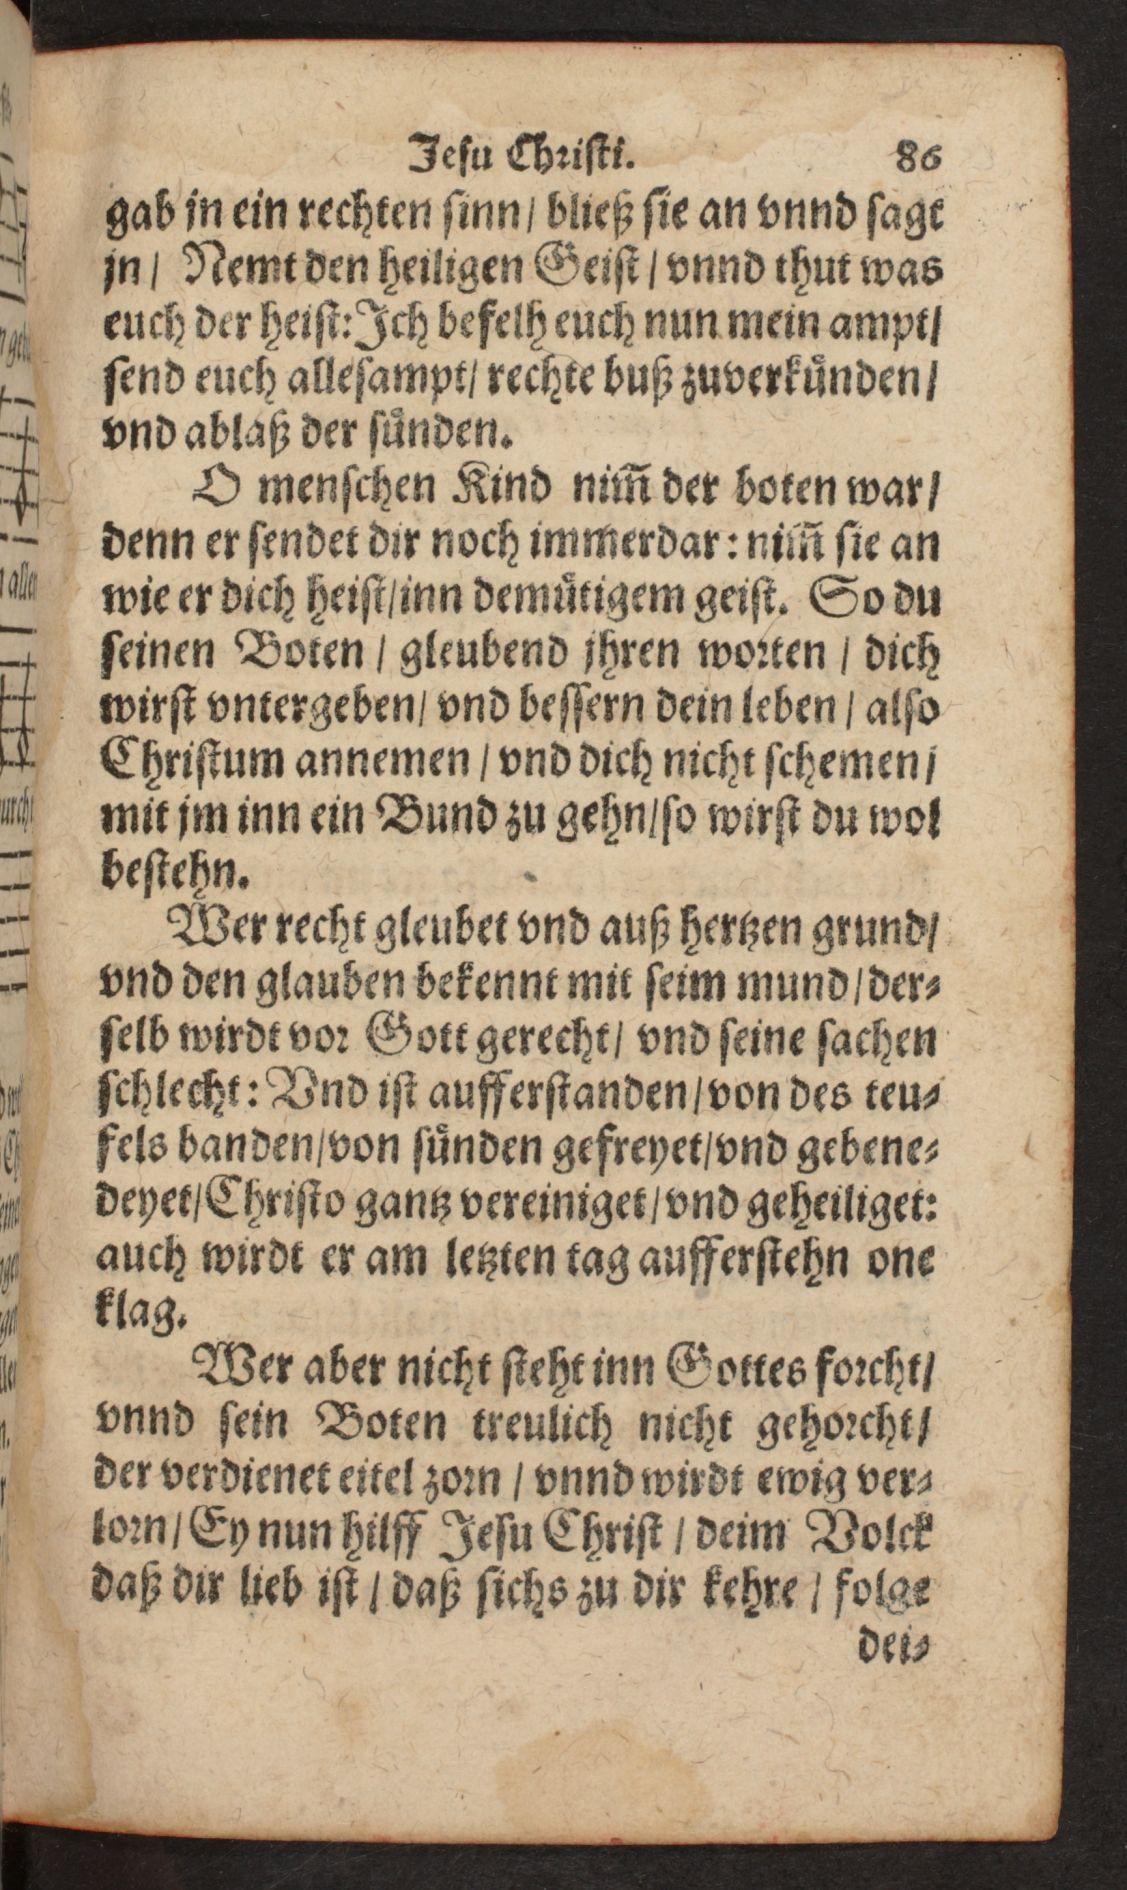 Jesu Christi. 86
gab jn ein rechten sinn/ bließ sie an vnnd sagt
jn/ Nemt den heiligen Geist/ vnnd thut was
euch der heist: Ich befelh euch nun mein ampt/
send euch allesampt/ rechte buß zuverkuͤnden/
vnd ablaß der suͤnden.
O menschen Kind nim̃ der boten war/
denn er sendet dir noch immerdar: nim̃ sie an
wie er dich heist/ inn demuͤtigem geist. So du
seinen Boten / gleubend jhren worten / dich
wirst vntergeben/ vnd bessern dein leben / also
Christum annemen / vnd dich nicht schemen/
mit jm inn ein Bund zu gehn/ so wirst du wol
bestehn.
Wer recht gleubet vnd auß hertzen grund/
vnd den glauben bekennt mit seim mund/ der⸗
selb wirdt vor Gott gerecht/ vnd seine sachen
schlecht: Vnd ist aufferstanden/ von des teu⸗
fels banden/ von suͤnden gefreyet/ vnd gebene⸗
deyet/ Christo gantz vereiniget/ vnd geheiliget:
auch wirdt er am letzten tag aufferstehn one
klag.
Wer aber nicht steht inn Gottes forcht/
vnnd sein Boten treulich nicht gehorcht/
der verdienet eitel zorn / vnnd wirdt ewig ver⸗
lorn/ Ey nun hilff Jesu Christ / deim Volck
daß dir lieb ist / daß sichs zu dir kehre / folge
dei⸗